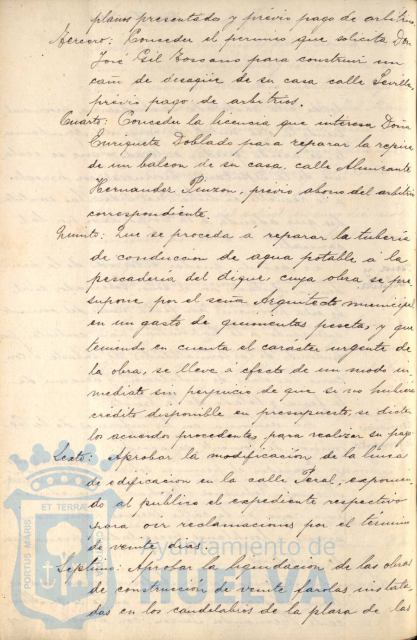 planos presentados y previo pago de arbitrios
Tercero: Conceder el permiso que solicita Don
José Gil Toscano para construir un
caño de desagüe de su casa calle Sevilla,
previo pago de arbitrios.
Cuarto: Conceder la licencia que interesa Doña
Enriqueta Doblado para reparar la repisa
de un balcon de su casa, calle Almirante
Hernandez Pinzon, previo abono del arbitrio
correspondiente.
Quinto: Que se proceda á reparar la tubería
de conduccion de agua potable á la
pescadería del dique, cuya obra se pre
supone por el señor Arquitecto municipal
en un gasto de quinientas pesetas, y que
teniendo en cuenta el carácter urgente de
la obra, se lleve á efecto de un modo in
mediato sin perjuicio de que si no hubiere
crédito disponible en presupuesto, se dicten
los acuerdos procedentes, para realizar su pago.
Sexto: Aprobar la modificacion de la línea
de edificacion en la calle Peral, exponien
do al público el expediente respectivo
para oir reclamaciones por el término
de veinte dias.
Septimo: Aprobar la liquidacion de las obras
de construccion de veinte farolas instala
das en los candelabros de la plaza de las
PORTUS MARIS
ET TERRAE
Ayuntamiento de
HUELVA